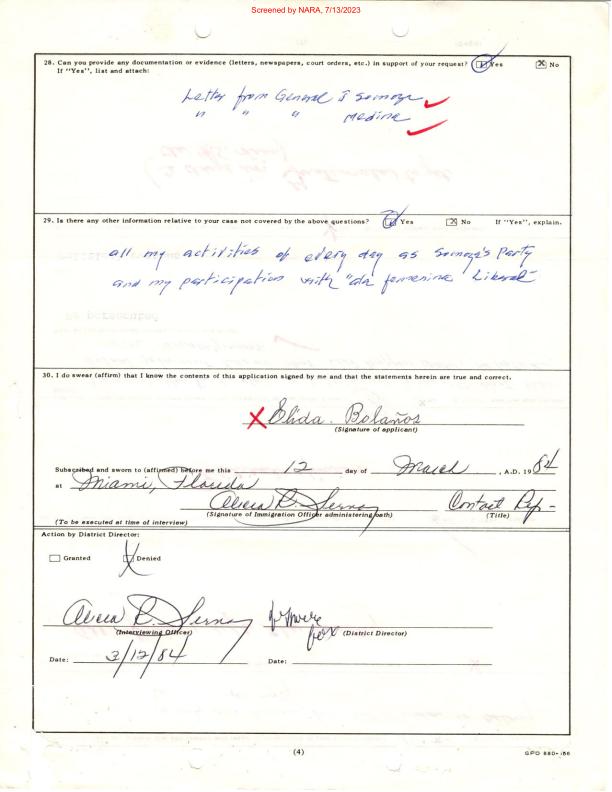 Screened by NARA, 7/13/2023
28. Can you provide any documentation or evidence (letters, newspapers, court orders, etc.) in support of your request? Yes No
If "Yes", list and attach:
Letter from General J Somoza
" " " Medina
29. Is there any other information relative to your case not covered by the above questions? Yes No If "Yes", explain.
all my activities of every day as Somoza's Party
and my participation with "ala femenina Liberal"
Be persecuted
30. I do swear (affirm) that I know the contents of this application signed by me and that the statements herein are true and correct.
X Elida. Bolaños
(Signature of applicant)
Subscribed and sworn to (affirmed) before me this 12 day of March , A.D. 1984
at Miami, Florida
Alicia R. Serna Contact Rep-
(Signature of Immigration Officer administering oath) (Title)
(To be executed at time of interview)
Action by District Director:
Granted Denied
Alicia R. Serna
(Interviewing Officer) (District Director)
Date: 3/12/84 Date:
(4)
GPO 880-166